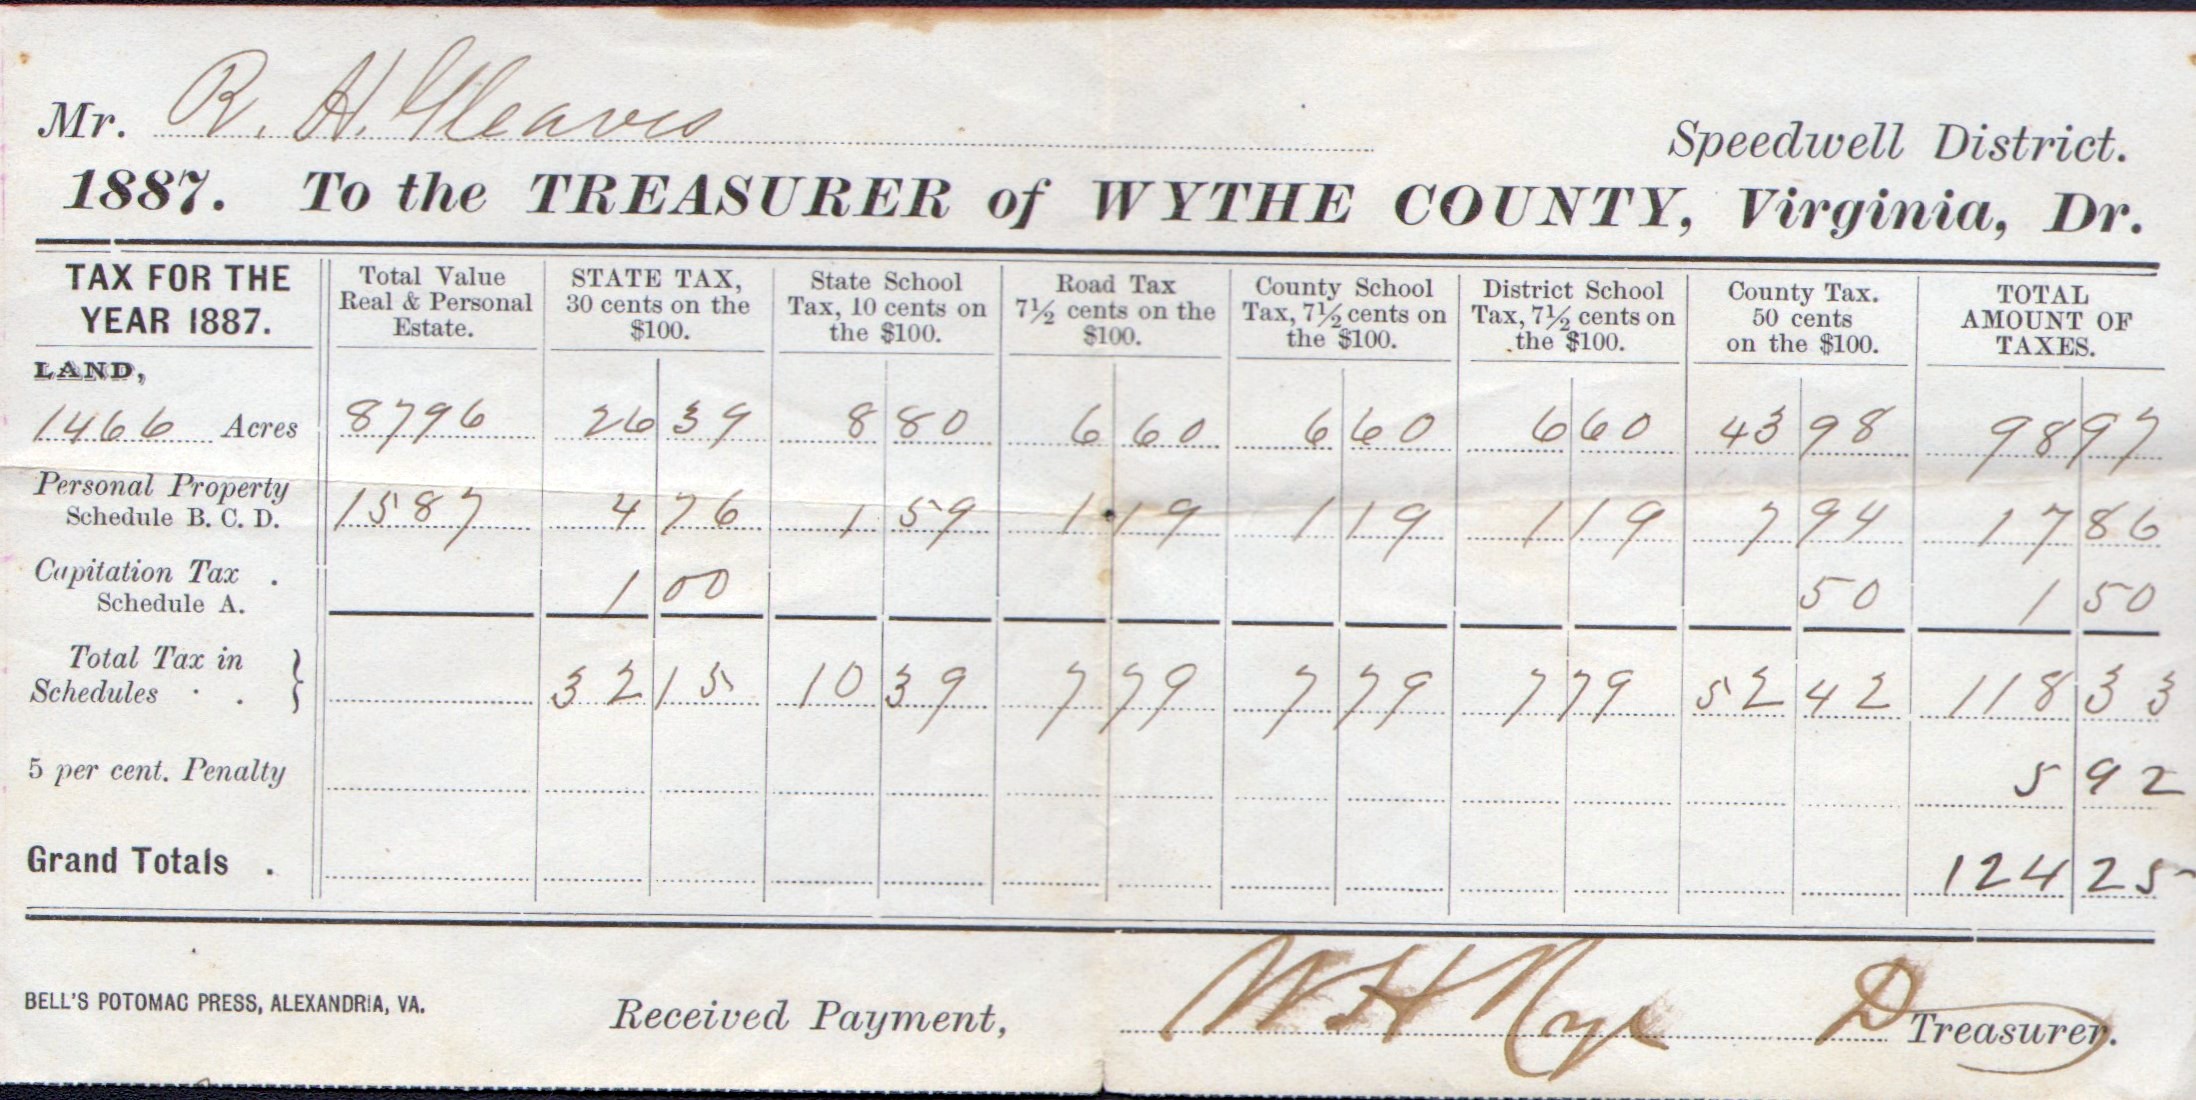 Mr. R. H. Gleaves
Speedwell District.
1887. To the TREASURER of WYTHE COUNTY, Virginia, Dr.
TAX FOR THE YEAR 1887. Total Value Real & Personal Estate. STATE TAX, 30 cents on the $100. State School Tax, 10 cents on the $100. Road Tax 7½ cents on the $100. County School Tax, 7½ cents on the $100. District School Tax, 7½ cents on the $100. County Tax. 50 cents on the $100. TOTAL AMOUNT OF TAXES.
LAND,
1466 Acres 8796 26 39 8 80 6 60 6 60 6 60 43 98 98 97
Personal Property
Schedule B. C. D. 1587 4 76 1 59 1 19 1 19 1 19 7 94 17 86
Capitation Tax .
Schedule A. 1 00 50 1 50
Total Tax in
Schedules . . } 32 15 10 39 7 79 7 79 7 79 52 42 118 33
5 per cent. Penalty 5 92
Grand Totals . 124 25
BELL'S POTOMAC PRESS, ALEXANDRIA, VA. Received Payment, W H D Treasurer.